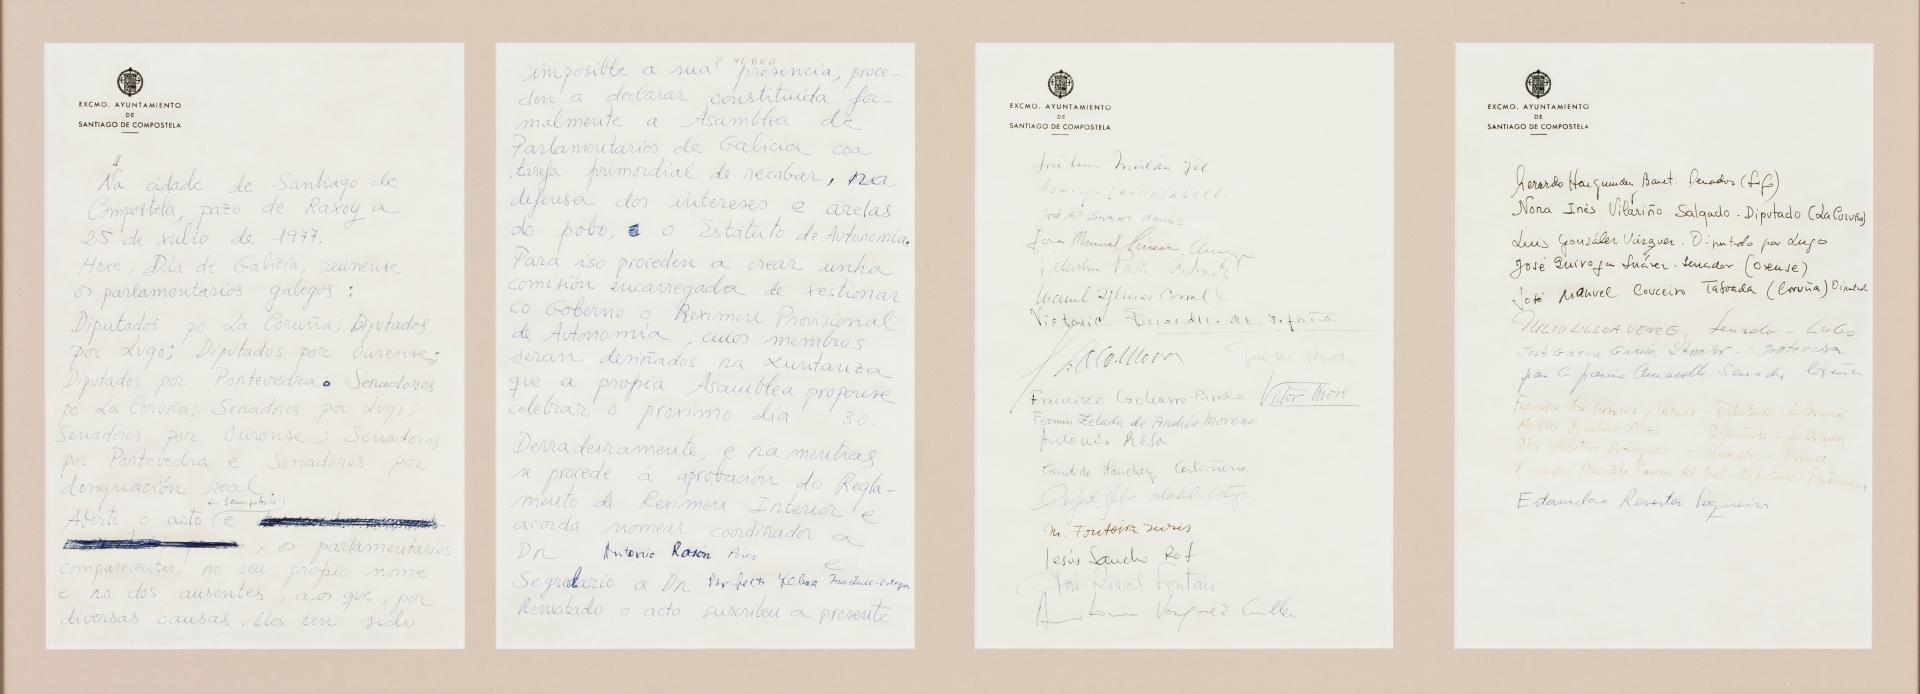 EXCMO. AYUNTAMIENTO
DE
SANTIAGO DE COMPOSTELA
Na cidade de Santiago de
Compostela, pazo de Raxoy a
25 de xulio de 1977.
Hoxe, Día de Galicia, reúnense
os parlamentarios galegos:
Diputados po La Coruña; Diputados
por Lugo; Diputados por Ourense;
Diputados por Pontevedra. Senadores
po La Coruña; Senadores por Lugo;
Senadores por Ourense; Senadores
por Pontevedra e Senadores por
designación real.
Aberto o acto e
, os parlamentarios
comparecentes, no seu propio nome
e no dos ausentes, aos que, por
diversas causas, lles ten sido
imposible a sua presencia, proce-
den a declarar constituida for-
malmente a Asamblea de
Parlamentarios de Galicia coa
tarefa primordial de recabar, na
defensa dos intereses e arelas
do pobo, o Estatuto de Autonomía.
Para iso proceden a crear unha
comisión encarregada de xestionar
co Goberno o Reximen Provisional
de Autonomía, cuios membros
seran desiñados na xuntanza
que a propia Asamblea proponse
celebrar o proximo dia 30.
Derradeiramente, e na mentras
se procede á aprobación do Regla-
mento de Reximen Interior e
acorda nomear coordinador a
Dn Antonio Rosón Pérez e
Segretario a Dn Perfecto Yebra Martul-Ortega
Rematado o acto suscriben a presente
EXCMO. AYUNTAMIENTO
DE
SANTIAGO DE COMPOSTELA
José Luis Meilán Gil
José Mª Suárez Núñez
José Manuel
Manuel Iglesias Corral
Victorín Fernández de España
Francisco Cacharro Pardo Víctor Moro
Fermín Zelada de Andrés Moreno
Antonio Rosón
Candido Sanchez Castiñeiras
Perfecto Yebra Martul-Ortega
M. Fonteira
Jesús Sancho Rof
José Rivas Fontán
Antonio Vázquez Guillén
EXCMO. AYUNTAMIENTO
DE
SANTIAGO DE COMPOSTELA
Gerardo Harguindey Banet. Senador (Lugo)
Nona Inés Vilariño Salgado. Diputado (La Coruña)
Luis González Vázquez. Diputado por Lugo
José Quiroga Suárez. Senador (Orense)
José Manuel Couceiro Taboada (Coruña) Diputado
JULIO ULLOA VENCE, Senador - Lugo
José García García, Senador - Pontevedra
Senador Coruña
Francisco Vázquez Vázquez - Diputado - La Coruña
Andrés Eguibar Rivas - Diputado - La Coruña
Celso Montero Rodríguez - Senador - Orense
Diputado - Pontevedra
Estanislao Reverter Sequeiros